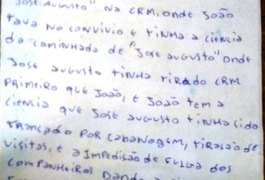 José Augusto", na CRM, onde João
tava no convivio e tinha a ciência
da caminhada de "José augusto" onde
José augusto tinha tirado CRM
primeiro que João, e João tem a
ciencia que José augusto tinha cido
trancado por cabanagem, tirasão de
visitas, e a impedisão de fuiga dos
companheiros Dando a